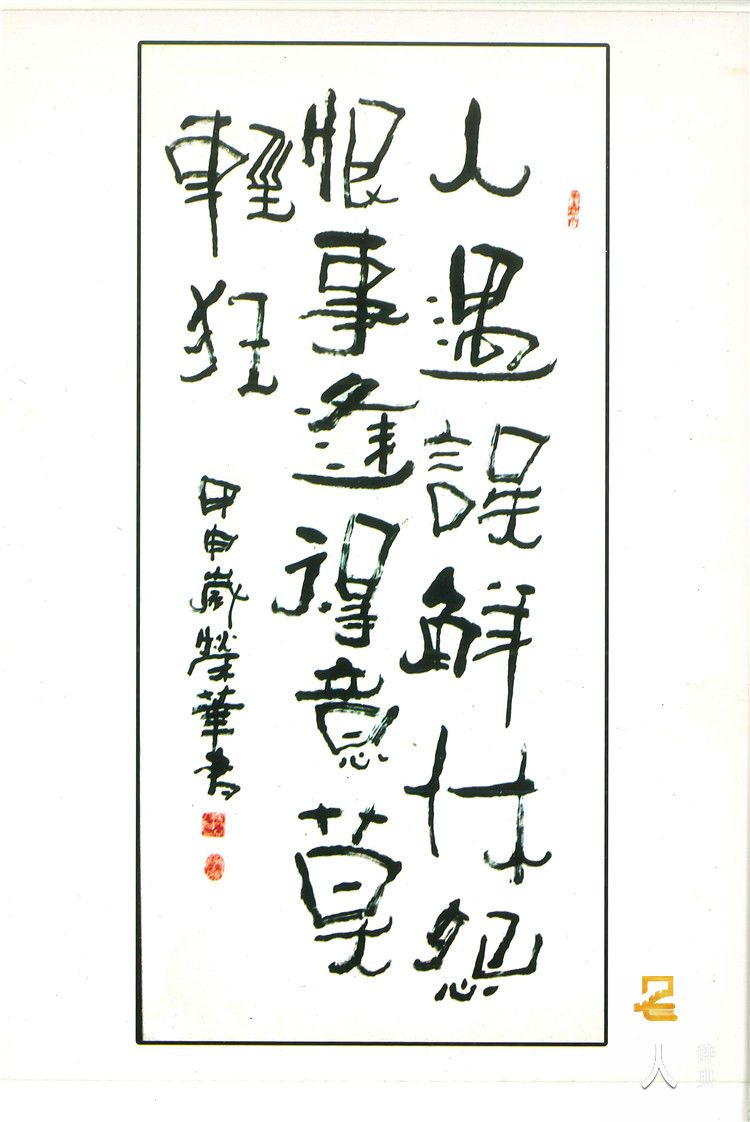 人遇誤解休怨
恨事逢得意莫
輕狂
甲申歲榮華書
人
辞典